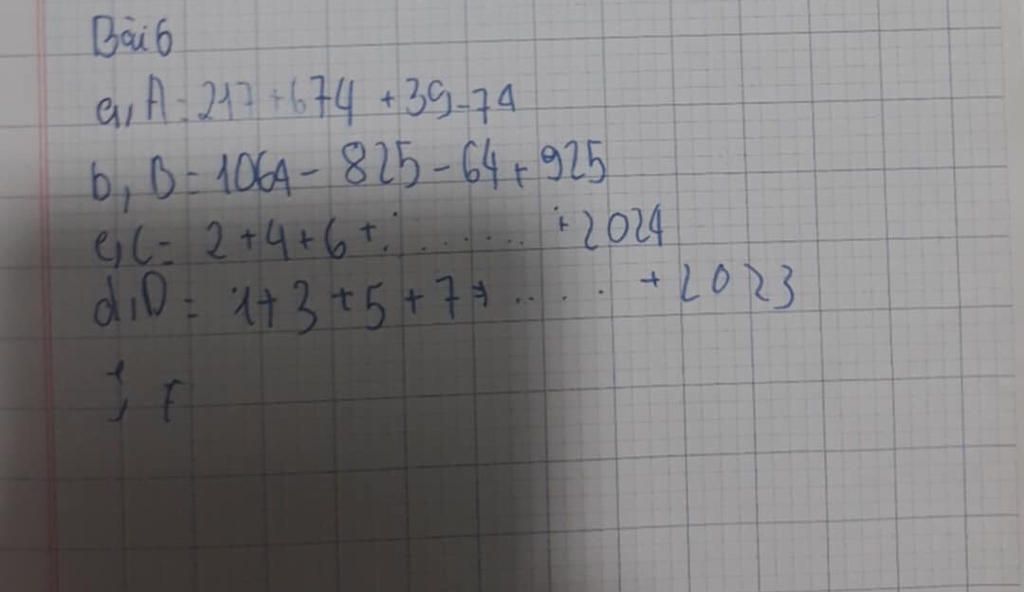 Bài 6
a, A = 217 + 674 + 39 - 74
b, B = 1064 - 825 - 64 + 925
c, C = 2 + 4 + 6 + ........ + 2024
d, D = 1 + 3 + 5 + 7 + .... + 2023